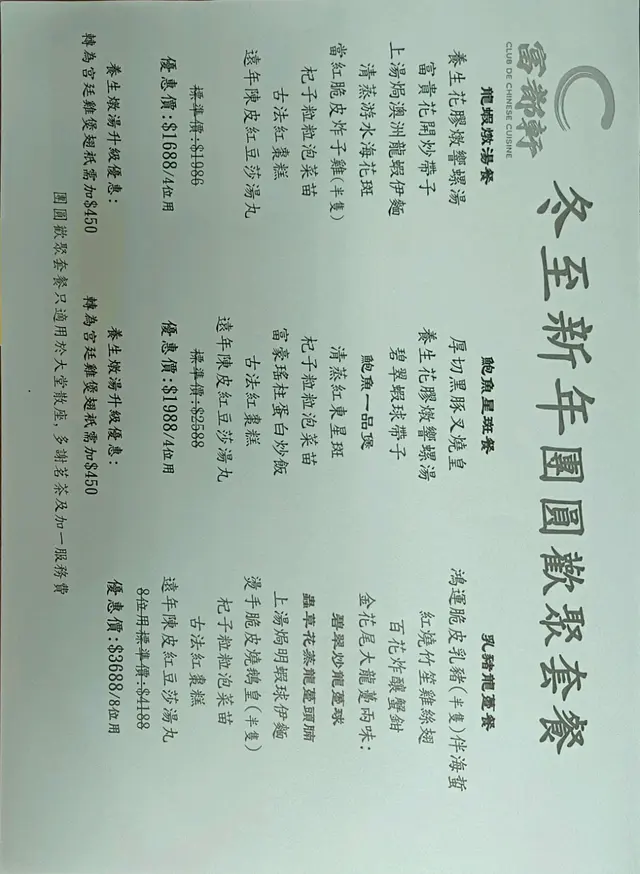 富都軒
CLUB DE CHINESE CUISINE
冬至新年團圓歡聚套餐
龍蝦燉湯餐
養生花膠燉響螺湯
富貴花開炒帶子
上湯焗澳洲龍蝦伊麵
清蒸游水海花斑
當紅脆皮炸子雞(半隻)
杞子粒粒泡菜苗
古法紅棗糕
遠年陳皮紅豆莎湯丸
標準價:$1986
優惠價:$1688/4位用
養生燉湯升級優惠:
轉為宮廷雞煲翅祇需加$450
鮑魚星斑餐
厚切黑豚叉燒皇
養生花膠燉響螺湯
碧翠蝦球帶子
鮑魚一品煲
清蒸紅東星斑
杞子粒粒泡菜苗
富豪瑤柱蛋白炒飯
古法紅棗糕
遠年陳皮紅豆莎湯丸
標準價:$2588
優惠價:$1988/4位用
養生燉湯升級優惠:
轉為宮廷雞煲翅祇需加$450
乳豬龍躉餐
鴻運脆皮乳豬(半隻)伴海蜇
紅燒竹笙雞絲翅
百花炸釀蟹鉗
金花尾大龍躉兩味:
碧翠炒龍躉球
蟲草花蒸龍躉頭腩
上湯焗明蝦球伊麵
燙手脆皮燒鵝皇(半隻)
杞子粒粒泡菜苗
古法紅棗糕
遠年陳皮紅豆莎湯丸
8位用標準價:$4188
優惠價:$3688/8位用
團圓歡聚套餐只適用於大堂散座,多謝茗茶及加一服務費